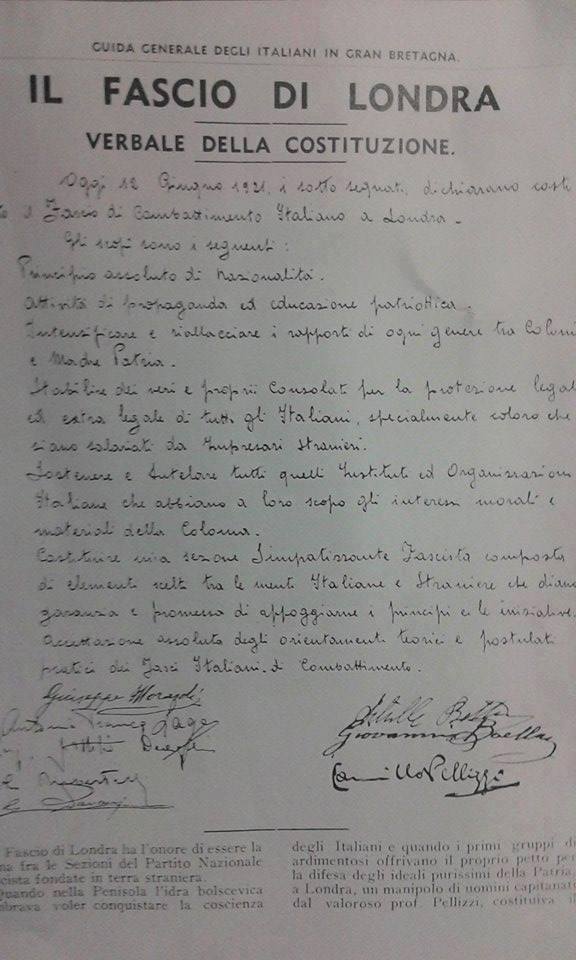 GUIDA GENERALE DEGLI ITALIANI IN GRAN BRETAGNA.
IL FASCIO DI LONDRA
VERBALE DELLA COSTITUZIONE.
Oggi 12 Giugno 1921, i sotto segnati, dichiarano costi
to il Fascio di Combattimento Italiano a Londra.
Gli scopi sono i seguenti:
Principio assoluto di Nazionalità.
Attività di propaganda ed educazione patriottica.
Intensificare e riallacciare i rapporti di ogni genere tra Coloni
e Madre Patria.
Stabilire dei veri e proprii Consolati per la protezione legal
ed extra legale di tutti gli Italiani, specialmente coloro che
siano salariati da Impresari Stranieri.
Sostenere e tutelare tutti quelli Instituti ed Organizzazioni
Italiane che abbiano a loro scopo gli interessi morali e
materiali della Colonia.
Costituire una sezione Simpatizzante Fascista composta
di elementi scelti tra le menti Italiane e Straniere che diano
garanzia e promessa di appoggiarne i principi e le iniziative.
Accettazione assoluta degli orientamenti teorici e postulati
pratici dei Fasci Italiani di Combattimento.
Giuseppe
Antonio
Camillo Pellizzi
Fascio di Londra ha l'onore di essere la
na fra le Sezioni del Partito Nazionale
cista fondate in terra straniera.
Quando nella Penisola l'idra bolscevica
mbrava voler conquistare la coscienza
degli Italiani e quando i primi gruppi di
ardimentosi offrivano il proprio petto per
la difesa degli ideali purissimi della Patria,
a Londra, un manipolo di uomini capitanato
dal valoroso prof. Pellizzi, costituiva il